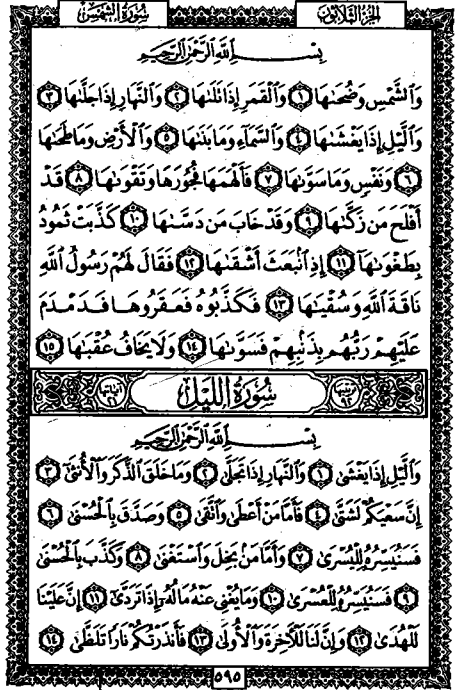 سُورَةُ الشَّمْسِ الجُزْءُ الثَّلَاثُونَ
بِسْمِ اللَّهِ الرَّحْمَٰنِ الرَّحِيمِ
وَالشَّمْسِ وَضُحَىٰهَا ١ وَالْقَمَرِ إِذَا تَلَىٰهَا ٢ وَالنَّهَارِ إِذَا جَلَّىٰهَا ٣
وَالَّيْلِ إِذَا يَغْشَىٰهَا ٤ وَالسَّمَآءِ وَمَا بَنَىٰهَا ٥ وَالْأَرْضِ وَمَا طَحَىٰهَا
٦ وَنَفْسٍ وَمَا سَوَّىٰهَا ٧ فَأَلْهَمَهَا فُجُورَهَا وَتَقْوَىٰهَا ٨ قَدْ
أَفْلَحَ مَن زَكَّىٰهَا ٩ وَقَدْ خَابَ مَن دَسَّىٰهَا ١٠ كَذَّبَتْ ثَمُودُ
بِطَغْوَىٰهَآ ١١ إِذِ انۢبَعَثَ أَشْقَىٰهَا ١٢ فَقَالَ لَهُمْ رَسُولُ اللَّهِ
نَاقَةَ اللَّهِ وَسُقْيَٰهَا ١٣ فَكَذَّبُوهُ فَعَقَرُوهَا فَدَمْدَمَ
عَلَيْهِمْ رَبُّهُم بِذَنۢبِهِمْ فَسَوَّىٰهَا ١٤ وَلَا يَخَافُ عُقْبَٰهَا ١٥
سُورَةُ اللَّيْلِ
بِسْمِ اللَّهِ الرَّحْمَٰنِ الرَّحِيمِ
وَالَّيْلِ إِذَا يَغْشَىٰ ١ وَالنَّهَارِ إِذَا تَجَلَّىٰ ٢ وَمَا خَلَقَ الذَّكَرَ وَالْأُنثَىٰٓ ٣
إِنَّ سَعْيَكُمْ لَشَتَّىٰ ٤ فَأَمَّا مَنْ أَعْطَىٰ وَاتَّقَىٰ ٥ وَصَدَّقَ بِالْحُسْنَىٰ ٦
فَسَنُيَسِّرُهُۥ لِلْيُسْرَىٰ ٧ وَأَمَّا مَنۢ بَخِلَ وَاسْتَغْنَىٰ ٨ وَكَذَّبَ بِالْحُسْنَىٰ
٩ فَسَنُيَسِّرُهُۥ لِلْعُسْرَىٰ ١٠ وَمَا يُغْنِي عَنْهُ مَالُهُۥٓ إِذَا تَرَدَّىٰٓ ١١ إِنَّ عَلَيْنَا
لَلْهُدَىٰ ١٢ وَإِنَّ لَنَا لَلْآخِرَةَ وَالْأُولَىٰ ١٣ فَأَنذَرْتُكُمْ نَارًا تَلَظَّىٰ ١٤
٥٩٥